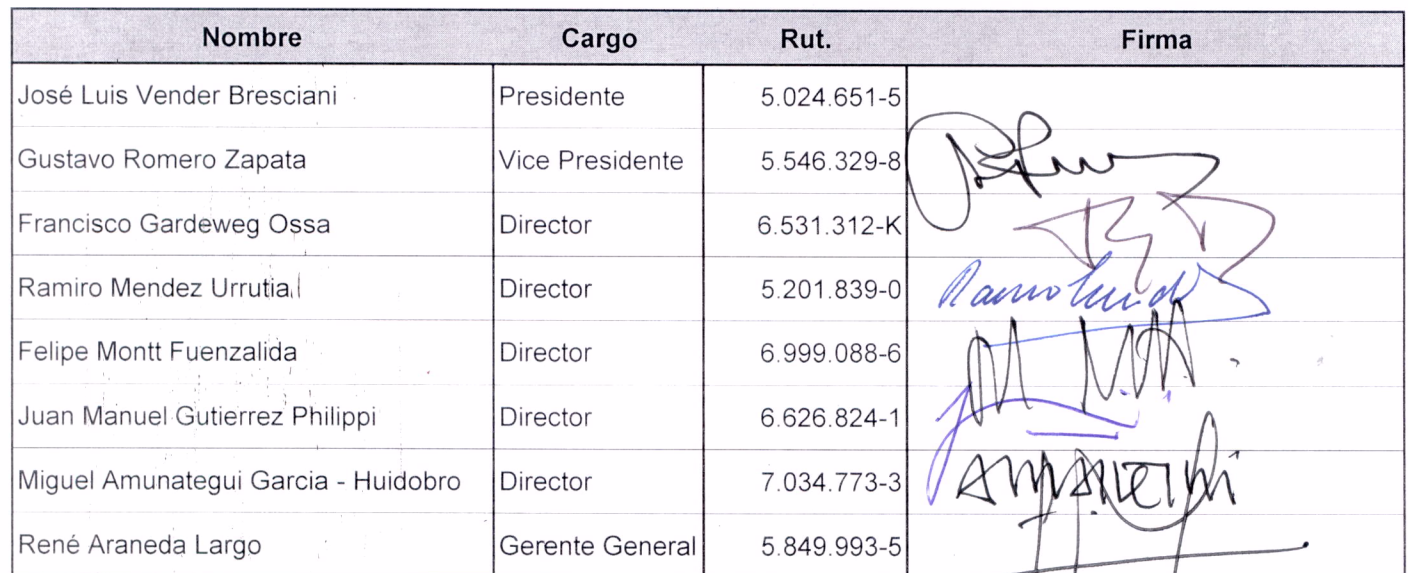 Nombre Cargo Rut. Firma
José Luis Vender Bresciani Presidente 5.024.651-5
Gustavo Romero Zapata Vice Presidente 5.546.329-8
Francisco Gardeweg Ossa Director 6.531.312-K
Ramiro Mendez Urrutia Director 5.201.839-0
Felipe Montt Fuenzalida Director 6.999.088-6
Juan Manuel Gutierrez Philippi Director 6.626.824-1
Miguel Amunategui Garcia - Huidobro Director 7.034.773-3
René Araneda Largo Gerente General 5.849.993-5